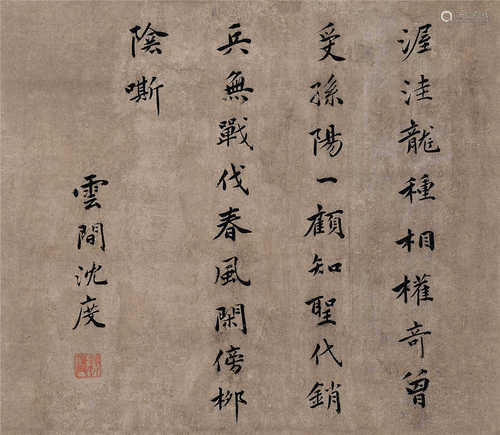 渥洼龍種相權奇曾
受孫陽一顧知聖代銷
兵無戰伐春風閑傍柳
陰嘶
雲間沈度